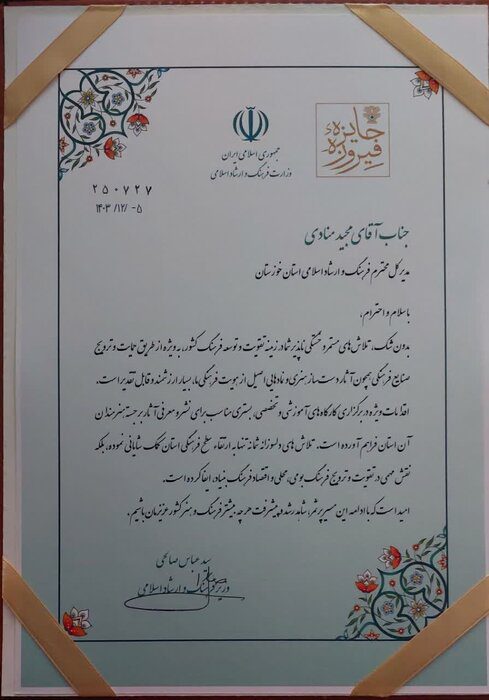 جایزه
فیروزه
جمهوری اسلامی ایران
وزارت فرهنگ و ارشاد اسلامی
۲۵۰۷۲۷
۱۴۰۳/۱۲/۰۵
جناب آقای مجید منادی
مدیرکل محترم فرهنگ و ارشاد اسلامی استان خوزستان
با سلام و احترام،
بدون شک، تلاش‌های مستمر و خستگی ناپذیر شما در زمینه تقویت و توسعه فرهنگ کشور، به ویژه از طریق حمایت و ترویج
صنایع فرهنگی همچون آثار دست‌ساز هنری و نمادهایی اصیل از هویت فرهنگی ما، بسیار ارزشمند و قابل تقدیر است.
اقدامات ویژه در برگزاری کارگاه‌های آموزشی و تخصصی، بستری مناسب برای نشر و معرفی آثار برجسته هنرمندان
آن استان فراهم آورده است. تلاش های دلسوزانه شما نه تنها به ارتقاء سطح فرهنگی استان کمک شایانی نموده، بلکه
نقش مهمی در تقویت و ترویج فرهنگ بومی، محلی و اقتصاد فرهنگ بنیاد، ایفا کرده است.
امید است که با ادامه این مسیر پرثمر، شاهد رشد و پیشرفت هرچه بیشتر فرهنگ و هنر کشور عزیزمان باشیم.
سید عباس صالحی
وزیر فرهنگ و ارشاد اسلامی